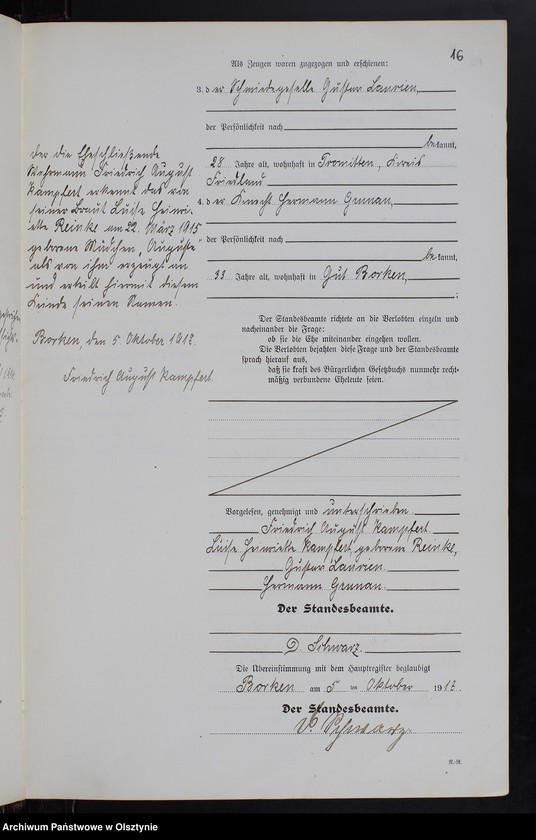 16
Als Zeugen waren zugezogen und erschienen:
3. der Schmiedegeselle Gustav Laurien,
der Persönlichkeit nach
bekannt,
28 Jahre alt, wohnhaft in Tromitten, Kreis
Friedland
4. der Knecht Hermann Grunau,
der Persönlichkeit nach
bekannt,
33 Jahre alt, wohnhaft in Gut Borken,
;
Der Standesbeamte richtete an die Verlobten einzeln und
nacheinander die Frage:
ob sie die Ehe miteinander eingehen wollen.
Die Verlobten bejahten diese Frage und der Standesbeamte
sprach hierauf aus,
daß sie kraft des Bürgerlichen Gesetzbuchs nunmehr recht-
mäßig verbundene Eheleute seien.
Vorgelesen, genehmigt und unterschrieben
Friedrich August Kampfert.
Luise Henriette Kampfert, geborene Reinke,
Gustav Laurien.
Hermann Grunau.
Der Standesbeamte.
D. Schwarz.
Die Übereinstimmung mit dem Hauptregister beglaubigt
Borken am 5 ten Oktober 191
Der Standesbeamte.
Schwarz.
der die Eheschließende
Wehrmann Friedrich August
Kampfert erkennt das von
seiner Braut Luise Henri-
ette Reinke am 22. März 1915
geborene Mädchen „Auguste“
als von ihm erzeugt an
und erteilt hiermit diesem
Kinde seinen Namen.
Borken, den 5. Oktober 191
Friedrich August Kampfert.
Archiwum Państwowe w Olsztynie